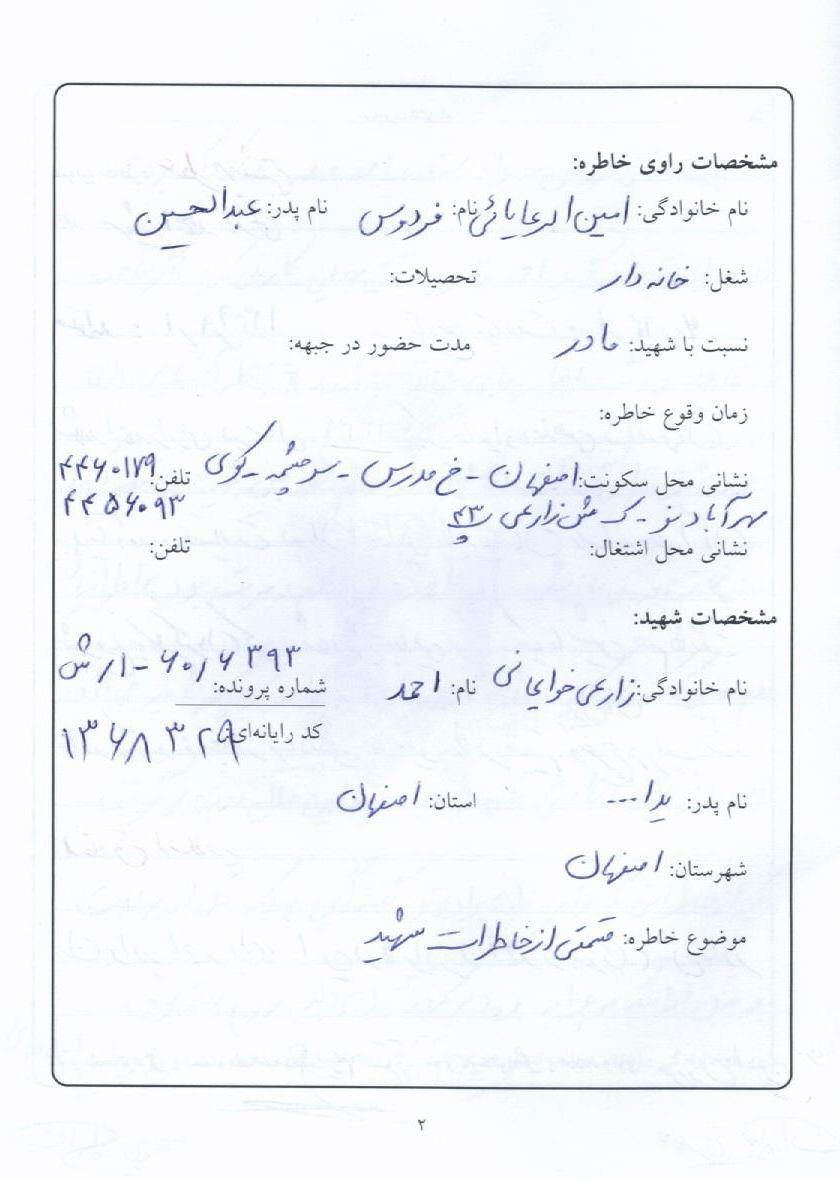 مشخصات راوی خاطره:
نام خانوادگی: امین الرعایائی نام: فردوس نام پدر: عبدالحسین
شغل: خانه دار تحصیلات:
نسبت با شهید: مادر مدت حضور در جبهه:
زمان وقوع خاطره:
نشانی محل سکونت: اصفهان - خ مدرس - سرچشمه - کوی تلفن: ۴۴۶۰۱۷۹
مهرآباد نو - ک ش زارعی پ ۴۳ ۴۴۵۶۰۹۳
نشانی محل اشتغال: تلفن:
مشخصات شهید:
۶۰۱۶۳۹۳ - ۱/ ش
نام خانوادگی: زارعی خوابجانی نام: احمد شماره پرونده:
کد رایانه‌ای: ۱۳۶۸۳۲۵۹
نام پدر: یدا... استان: اصفهان
شهرستان: اصفهان
موضوع خاطره: قسمتی از خاطرات شهید
۲